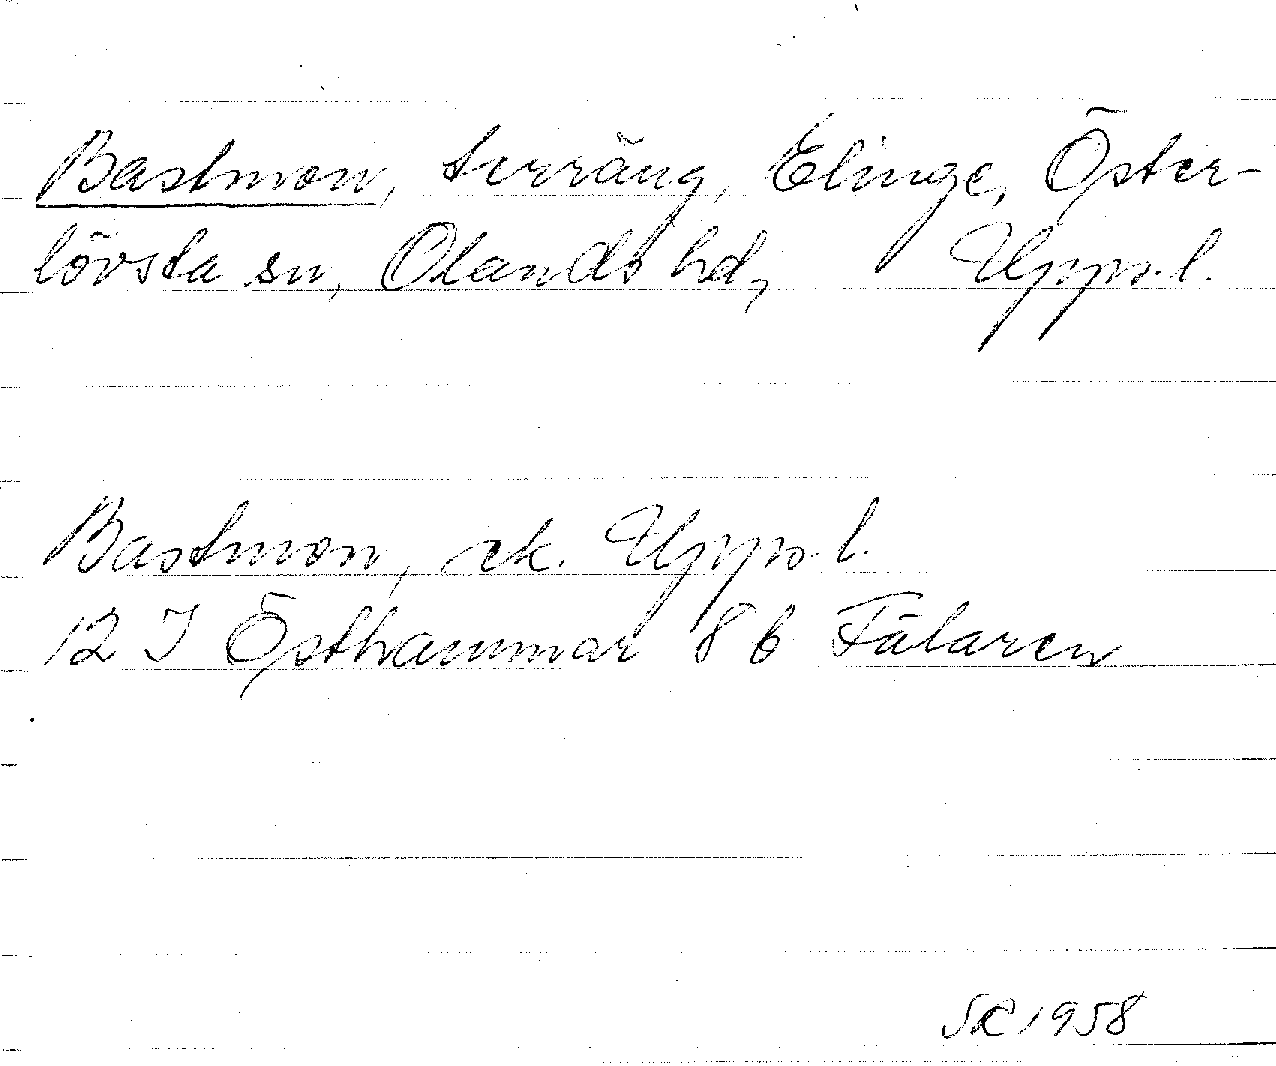 Bastmon, terräng, Elinge, Öster-
lövsta sn, Olands hd, Upps.l.
Bastmon, ek. Upps.l.
12 I Östhammar 8 b Fälaren
SR 1958